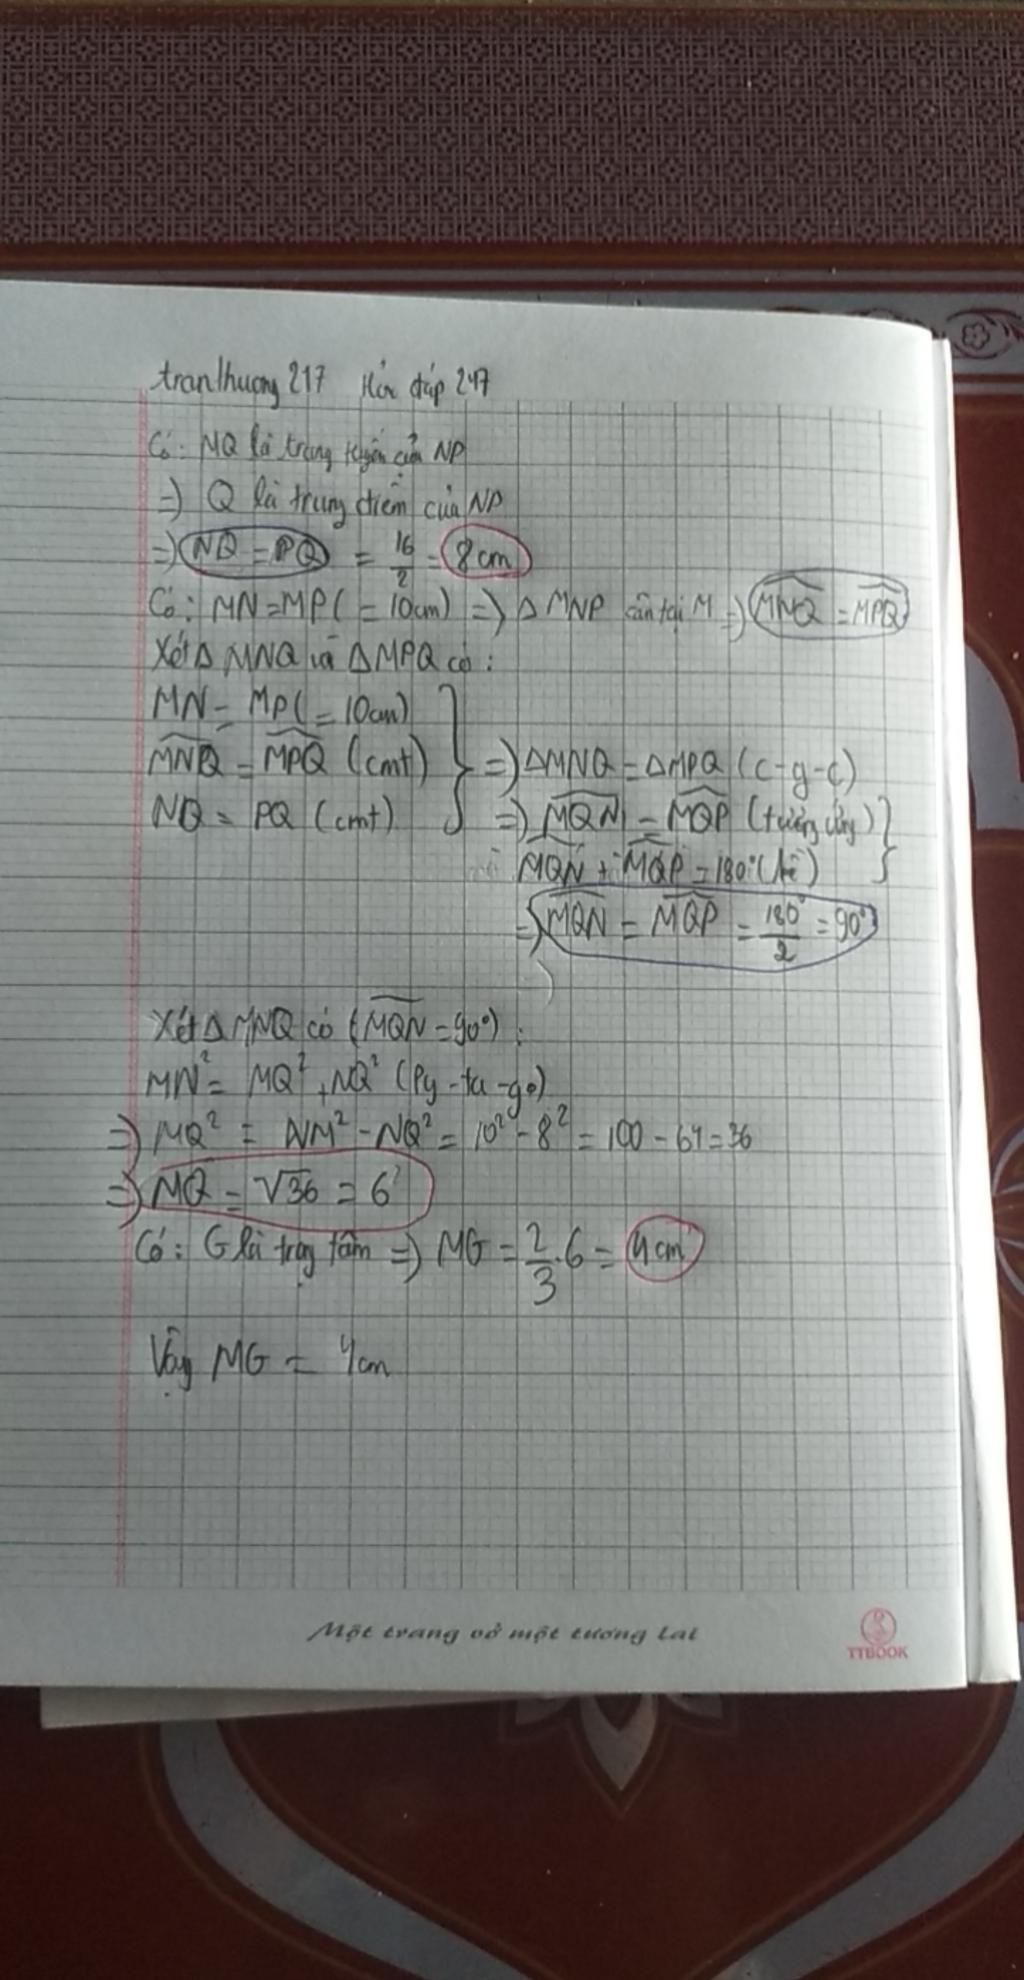 tranthuong 217 Hỏi đáp 247
Có: MQ là trung tuyến của NP
=> Q là trung điểm của NP
=> NQ = PQ = 16/2 = 8cm
Có: MN=MP(=10cm) => Δ MNP cân tại M => MNQ = MPQ
Xét Δ MNQ và ΔMPQ có:
MN = MP(=10cm)
MNQ = MPQ (cmt)
NQ = PQ (cmt)
=> ΔMNQ = ΔMPQ (c-g-c)
=> MQN = MQP (tương ứng)
MQN + MQP = 180° (kề)
=> MQN = MQP = 180°/2 = 90°
Xét Δ MNQ có (MQN = 90°):
MN² = MQ² + NQ² (Py-ta-go)
=> MQ² = NM² - NQ² = 10² - 8² = 100 - 64 = 36
=> MQ = √36 = 6
Có: G là trọng tâm => MG = 2/3 . 6 = 4cm
Vậy MG = 4cm
Một trang vở một tương lai
TTBOOK